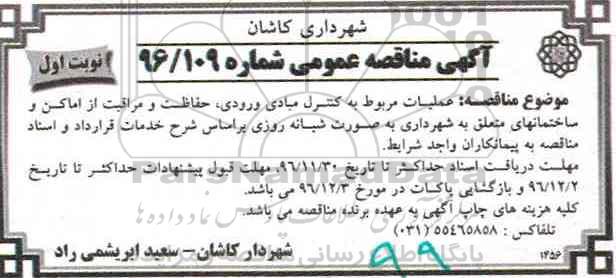 شهرداری کاشان
آگهی مناقصه عمومی شماره ۹۶/۱۰۹
نوبت اول
موضوع مناقصه: عملیات مربوط به کنترل مبادی ورودی، حفاظت و مراقبت از اماکن و
ساختمانهای متعلق به شهرداری به صورت شبانه روزی براساس شرح خدمات قرارداد و اسناد
مناقصه به پیمانکاران واجد شرایط.
مهلت دریافت اسناد حداکثر تا تاریخ ۹۶/۱۱/۳۰، مهلت قبول پیشنهادات حداکثر تا تاریخ
۹۶/۱۲/۲ و بازگشایی پاکات در مورخ ۹۶/۱۲/۳ می باشد.
کلیه هزینه های چاپ آگهی به عهده برنده مناقصه می باشد.
تلفاکس : ۵۵۴۶۵۸۵۸ (۰۳۱)
شهردار کاشان - سعید ابریشمی راد
۱۴۵۶
۹۹
ParsNamadData